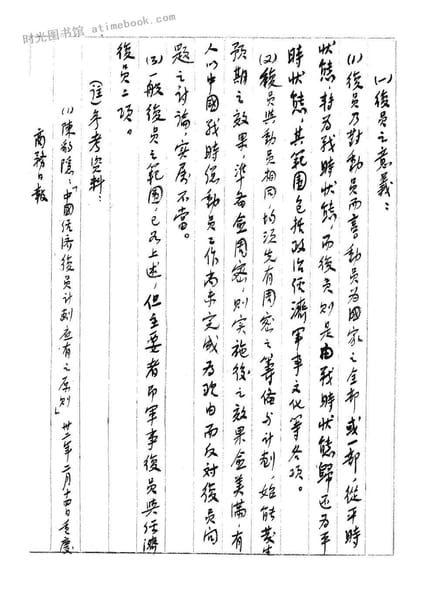 时光图书馆 atimebook.com
(一)復員之意義：
(1)復員乃對動員而言，動員為國家之全部或一部，從平時
狀態，轉為戰時狀態，而復員則是由戰時狀態歸還為平
時狀態，其範圍包括政治經濟軍事文化等各項。
(2)復員與動員相同，均須先有周密之籌備与計劃，始能發生
預期之效果，準备愈周密，則实施後之效果愈美滿，有
人以中國戰時總動員工作尚未完成為理由而反对復員问
題之討論，实屬不當。
(3)一般復員之範圍，已如上述，但主要者即軍事復員與經濟
復員二項。
(註)参考資料：
(1)陳豹隱：「中國經濟復員計劃应有之原則」卅二年二月十四日重慶
商務日報